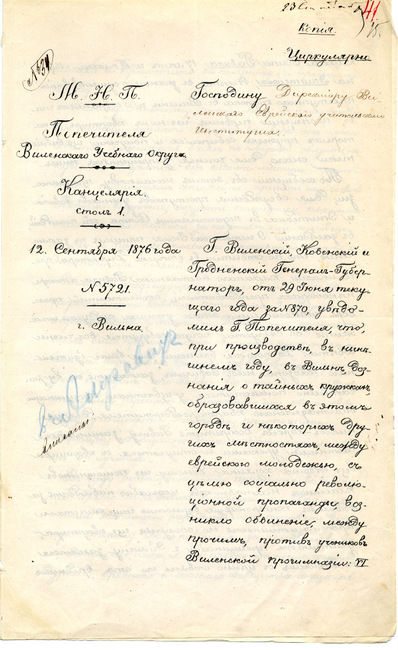 23 Сентября
41
Копія
Циркулярно
М. Н. П.
Попечителя
Виленскаго Учебнаго Округа.
Канцелярія.
столъ 1.
12 Сентября 1876 года
№ 5721.
г. Вильна.
Господину Директору Ви-
ленскаго Еврейскаго учительскаго
Института.
Г. Виленскій, Ковенскій и
Гродненскій Генералъ-Губер-
наторъ, отъ 29 Іюня теку-
щаго года за № 870, увѣдо-
милъ Г. Попечителя, что,
при производствѣ, въ нын-
ѣшнемъ году, въ Вильнѣ, доз-
нанія о тайныхъ кружкахъ,
образовавшихся въ этомъ
городѣ и нѣкоторыхъ дру-
гихъ мѣстностяхъ, между
еврейскою молодежью, съ
цѣлью соціально революці-
онной пропаганды, воз-
никло обвиненіе, между
прочимъ, противъ учениковъ
Виленской прогимназіи: VI